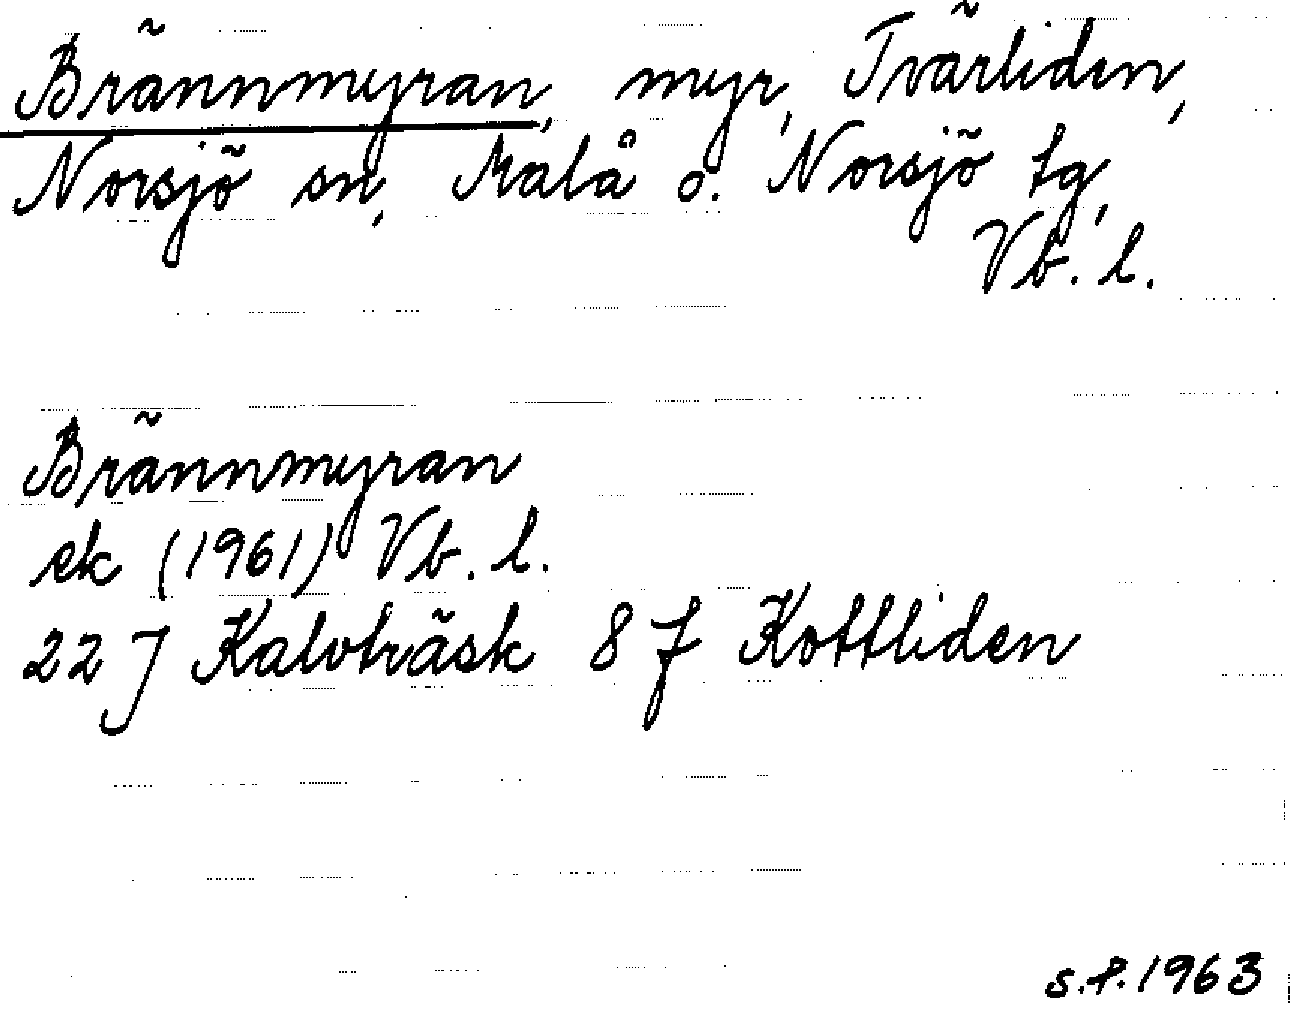 Brännmyran, myr, Tvärliden,
Norsjö sn, Malå o. Norsjö tg,
Vb. l.
Brännmyran
ek (1961) Vb. l.
22 J Kalvträsk 8 f Kottliden
s.f. 1963